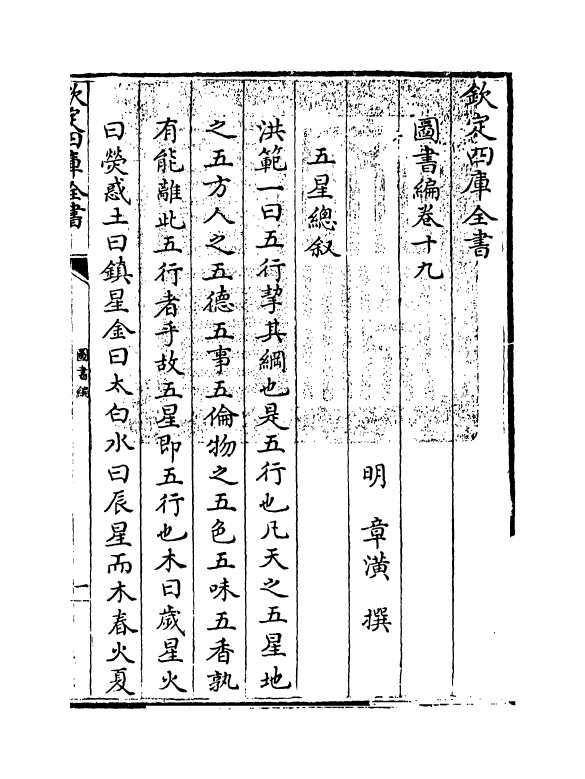 欽定四庫全書
圖書編卷十九
明　章潢　撰
五星總叙
洪範一曰五行挈其綱也是五行也凡天之五星地
之五方人之五德五事五倫物之五色五味五香孰
有能離此五行者乎故五星即五行也木曰歲星火
曰熒惑土曰鎮星金曰太白水曰辰星而木春火夏
欽定四庫全書
圖書編
一